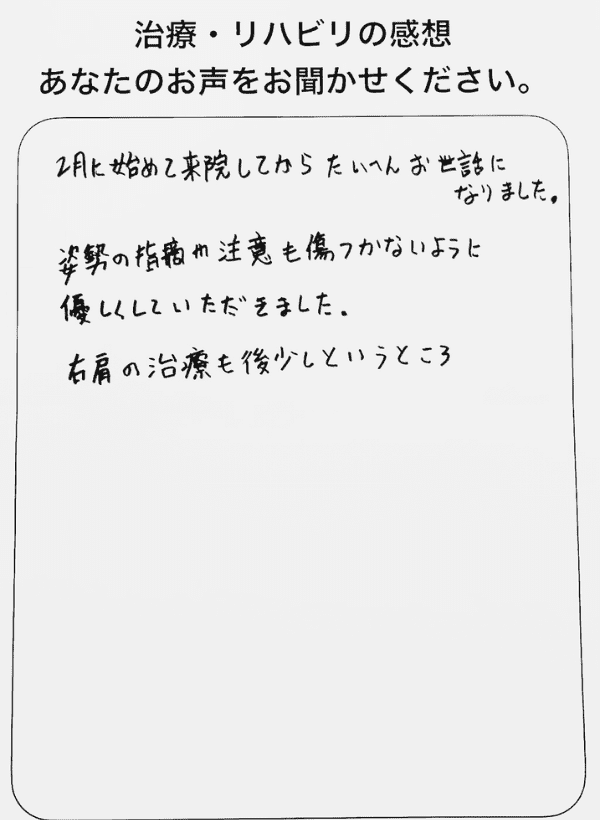 治療・リハビリの感想
あなたのお声をお聞かせください。
2月に始めて来院してから たいへん お世話に
なりました。
姿勢の指摘や注意も傷つかないように
優しくしていただきました。
右肩の治療も後少しというところ